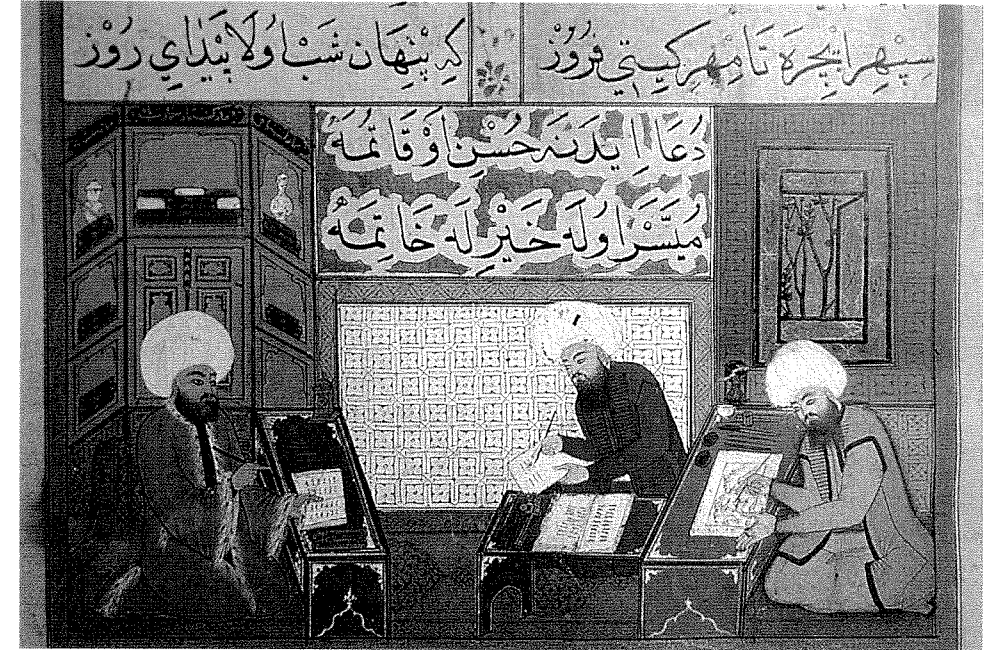 سپهر ایچره تا مهر کیتی فروز
که پنهان شب اولا پیدای روز
دعا ایدنه حسن اوقاتمه
میسر اوله خیرله خاتمه